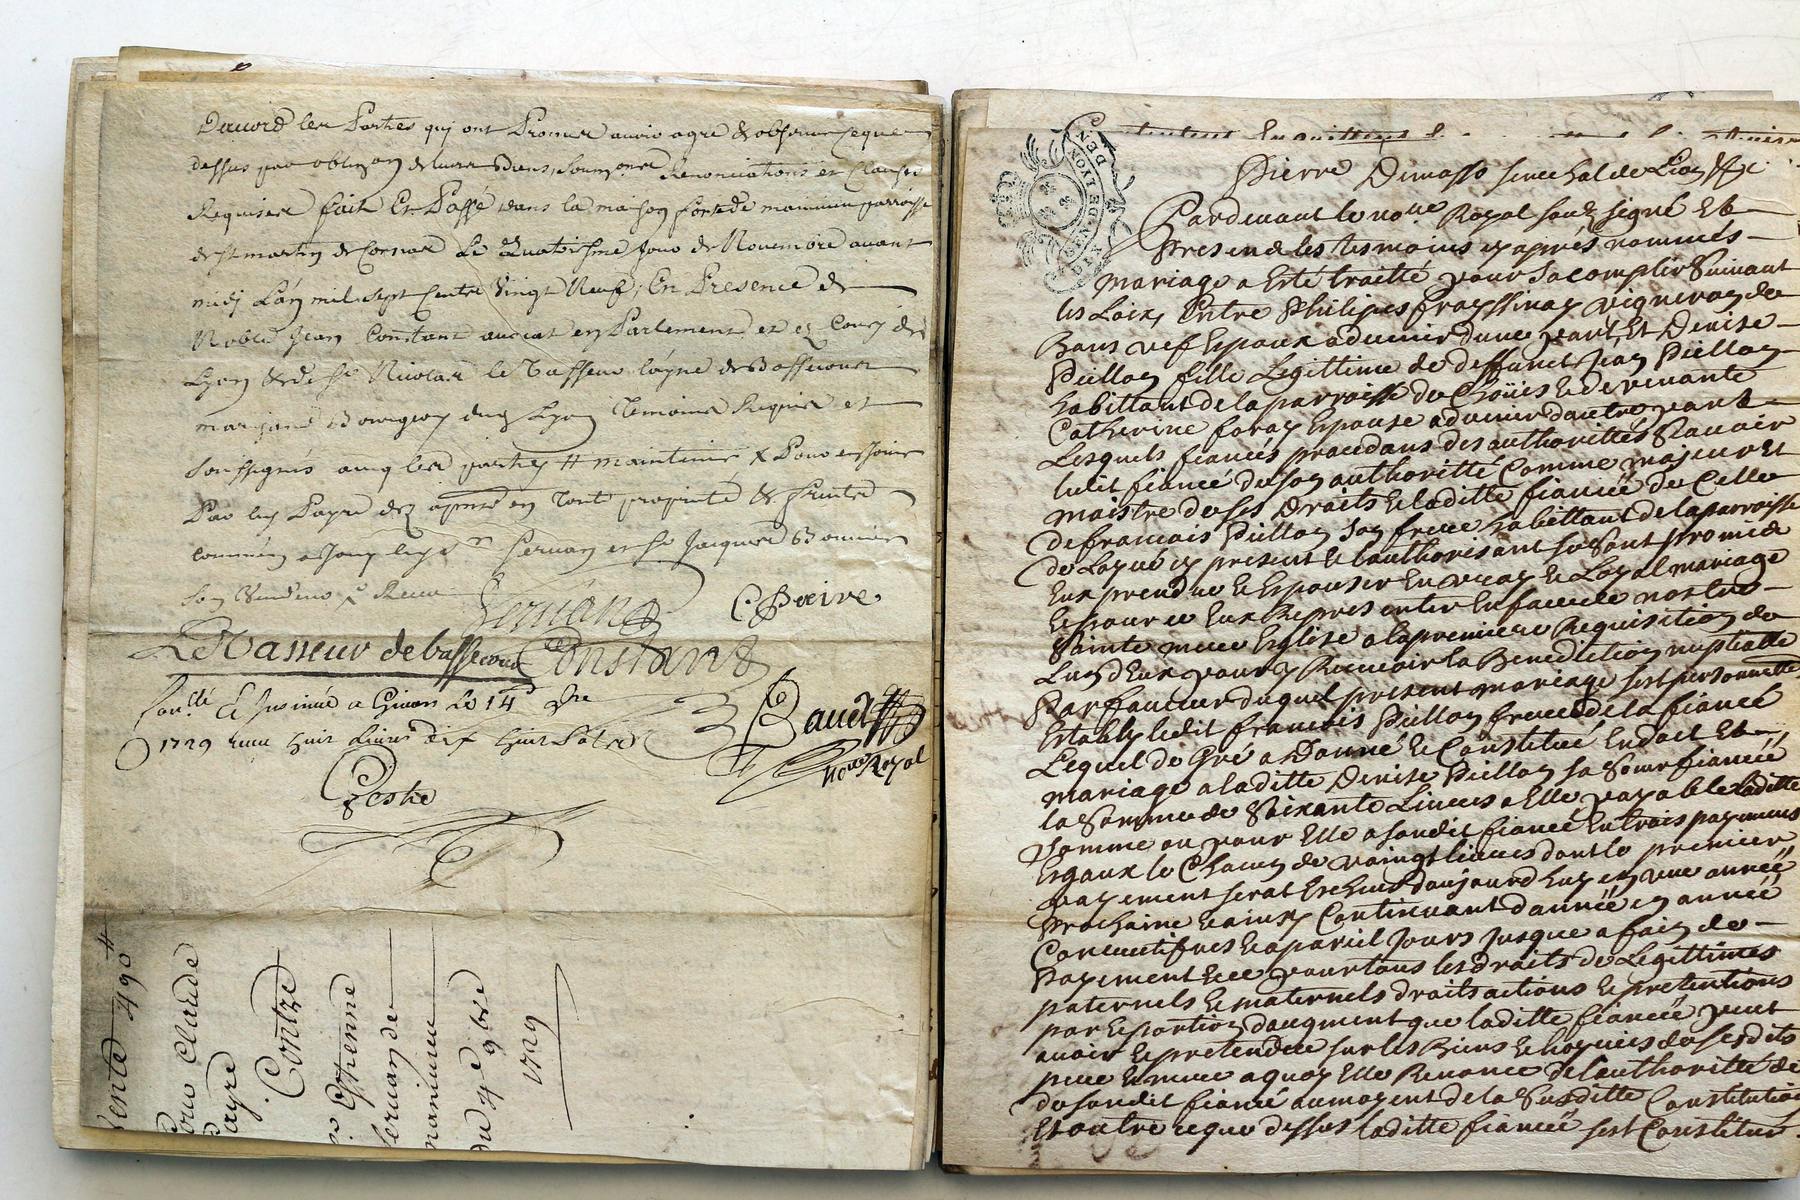 les Parties qui ont Promis avoir agré & observer ce que
dessus par obligaon de leurs Biens, Renonciations et Clauses
Requises fait Et Passé dans la maison forte de manimieu parroisse
de St martin de Cornas Le Quatriesme Jour de Novembre avant
midy L'an mil sept Cents Vingt Neuf, En Presence de
Noble Jean Constant avocat en Parlement et ez Cours de
Lyon & de Sr Nicolas le Vasseur de Bassecour
marchand Bourgeois Lyon Temoins Requis et
soussignés avec les parties
par luy Payre en Toute proprieté &
Sr Jacques
Servan CPaire
LeVasseur debassecour Constant
Conllé & Insinué a Givors Le 14 9bre
1729 Receu huit Livres dix huit sols
Baudt
nore Royal
Vente 490#
Pour Claude
Payre
Contre
Sr Ethienne
Servan de
manimieu
Du 4e 9bre
1729
GEN. DE LYON
Pierre Dumasso senechal de Lion &c
Pardevant le nore Royal soubsigné Et
Presends les tesmoins cy aprés nommés
mariage a Esté traitté pour sacomplir Suivant
les Loix, Entre Philipes frayssinay vigneron de
Bans vef Espoux advenir dune part, Et Denise
Piellon fille Legittime de deffunct Jean Piellon
habittant de la parroisse de Choüis & de vivante
Catherine foray Espouse advenir dautre part
Lesquels fiancés procedans des authorittés Scavoir
ledit fiancé de son authoritté Comme majeur et
maistre de ses Droits & laditte fiancée de Celle
de francois Piellon son frere habittant de la parroisse
de Loyré cy present & lauthorisant se sont promis
Eux prendre & Espouser En vray & Loyal mariage
& pour ce Eux Representer En face de nostre
Sainte mere Eglise a la premiere Requisition de
Lun dEux pour y Recevoir la Benediction nuptialle
En faveur duquel present mariage sest personnelle
Estably ledit francois Piellon frere de la fiancée
Lequel de Gré a Donné & Constitué En dot Et
mariage a laditte Denise Piellon sa Sœur fiancée
la Somme de Soixante Livres a Elle payable laditte
somme ou pour Elle a sondit fiancé En trois payemens
Esgaux & Chacun de vaingt livres dont le premier
payement serat Escheus daujourdhuy en une année
Prochaine & ainsy Continuant dannée en année
Concecutifves & a pareil Jours Jusque a fain de
Payement & ce pour tous les droits de Legittimes
paternels & maternels droits actions & pretentions
part & portion daugment que laditte fiancée peut
avoir & pretendre sur les Biens & hoyries de sesdits
pere & mere a quoy Elle Renonce de lauthorité
de sondit fiancé au moyent de la Susditte Constitution
Et outre ce que dessus laditte fiancée sest Constitué